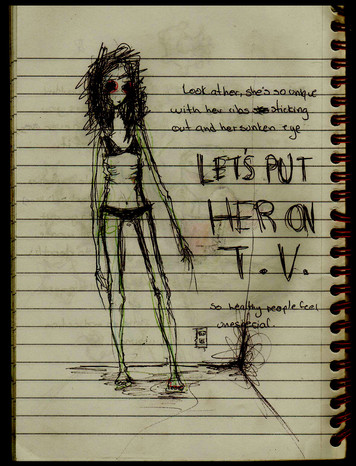 Look at her, she's so unique
with her ribs sticking
out and her sunken eye
LET'S PUT
HER ON
T.V.
so healthy people feel
unespecial.